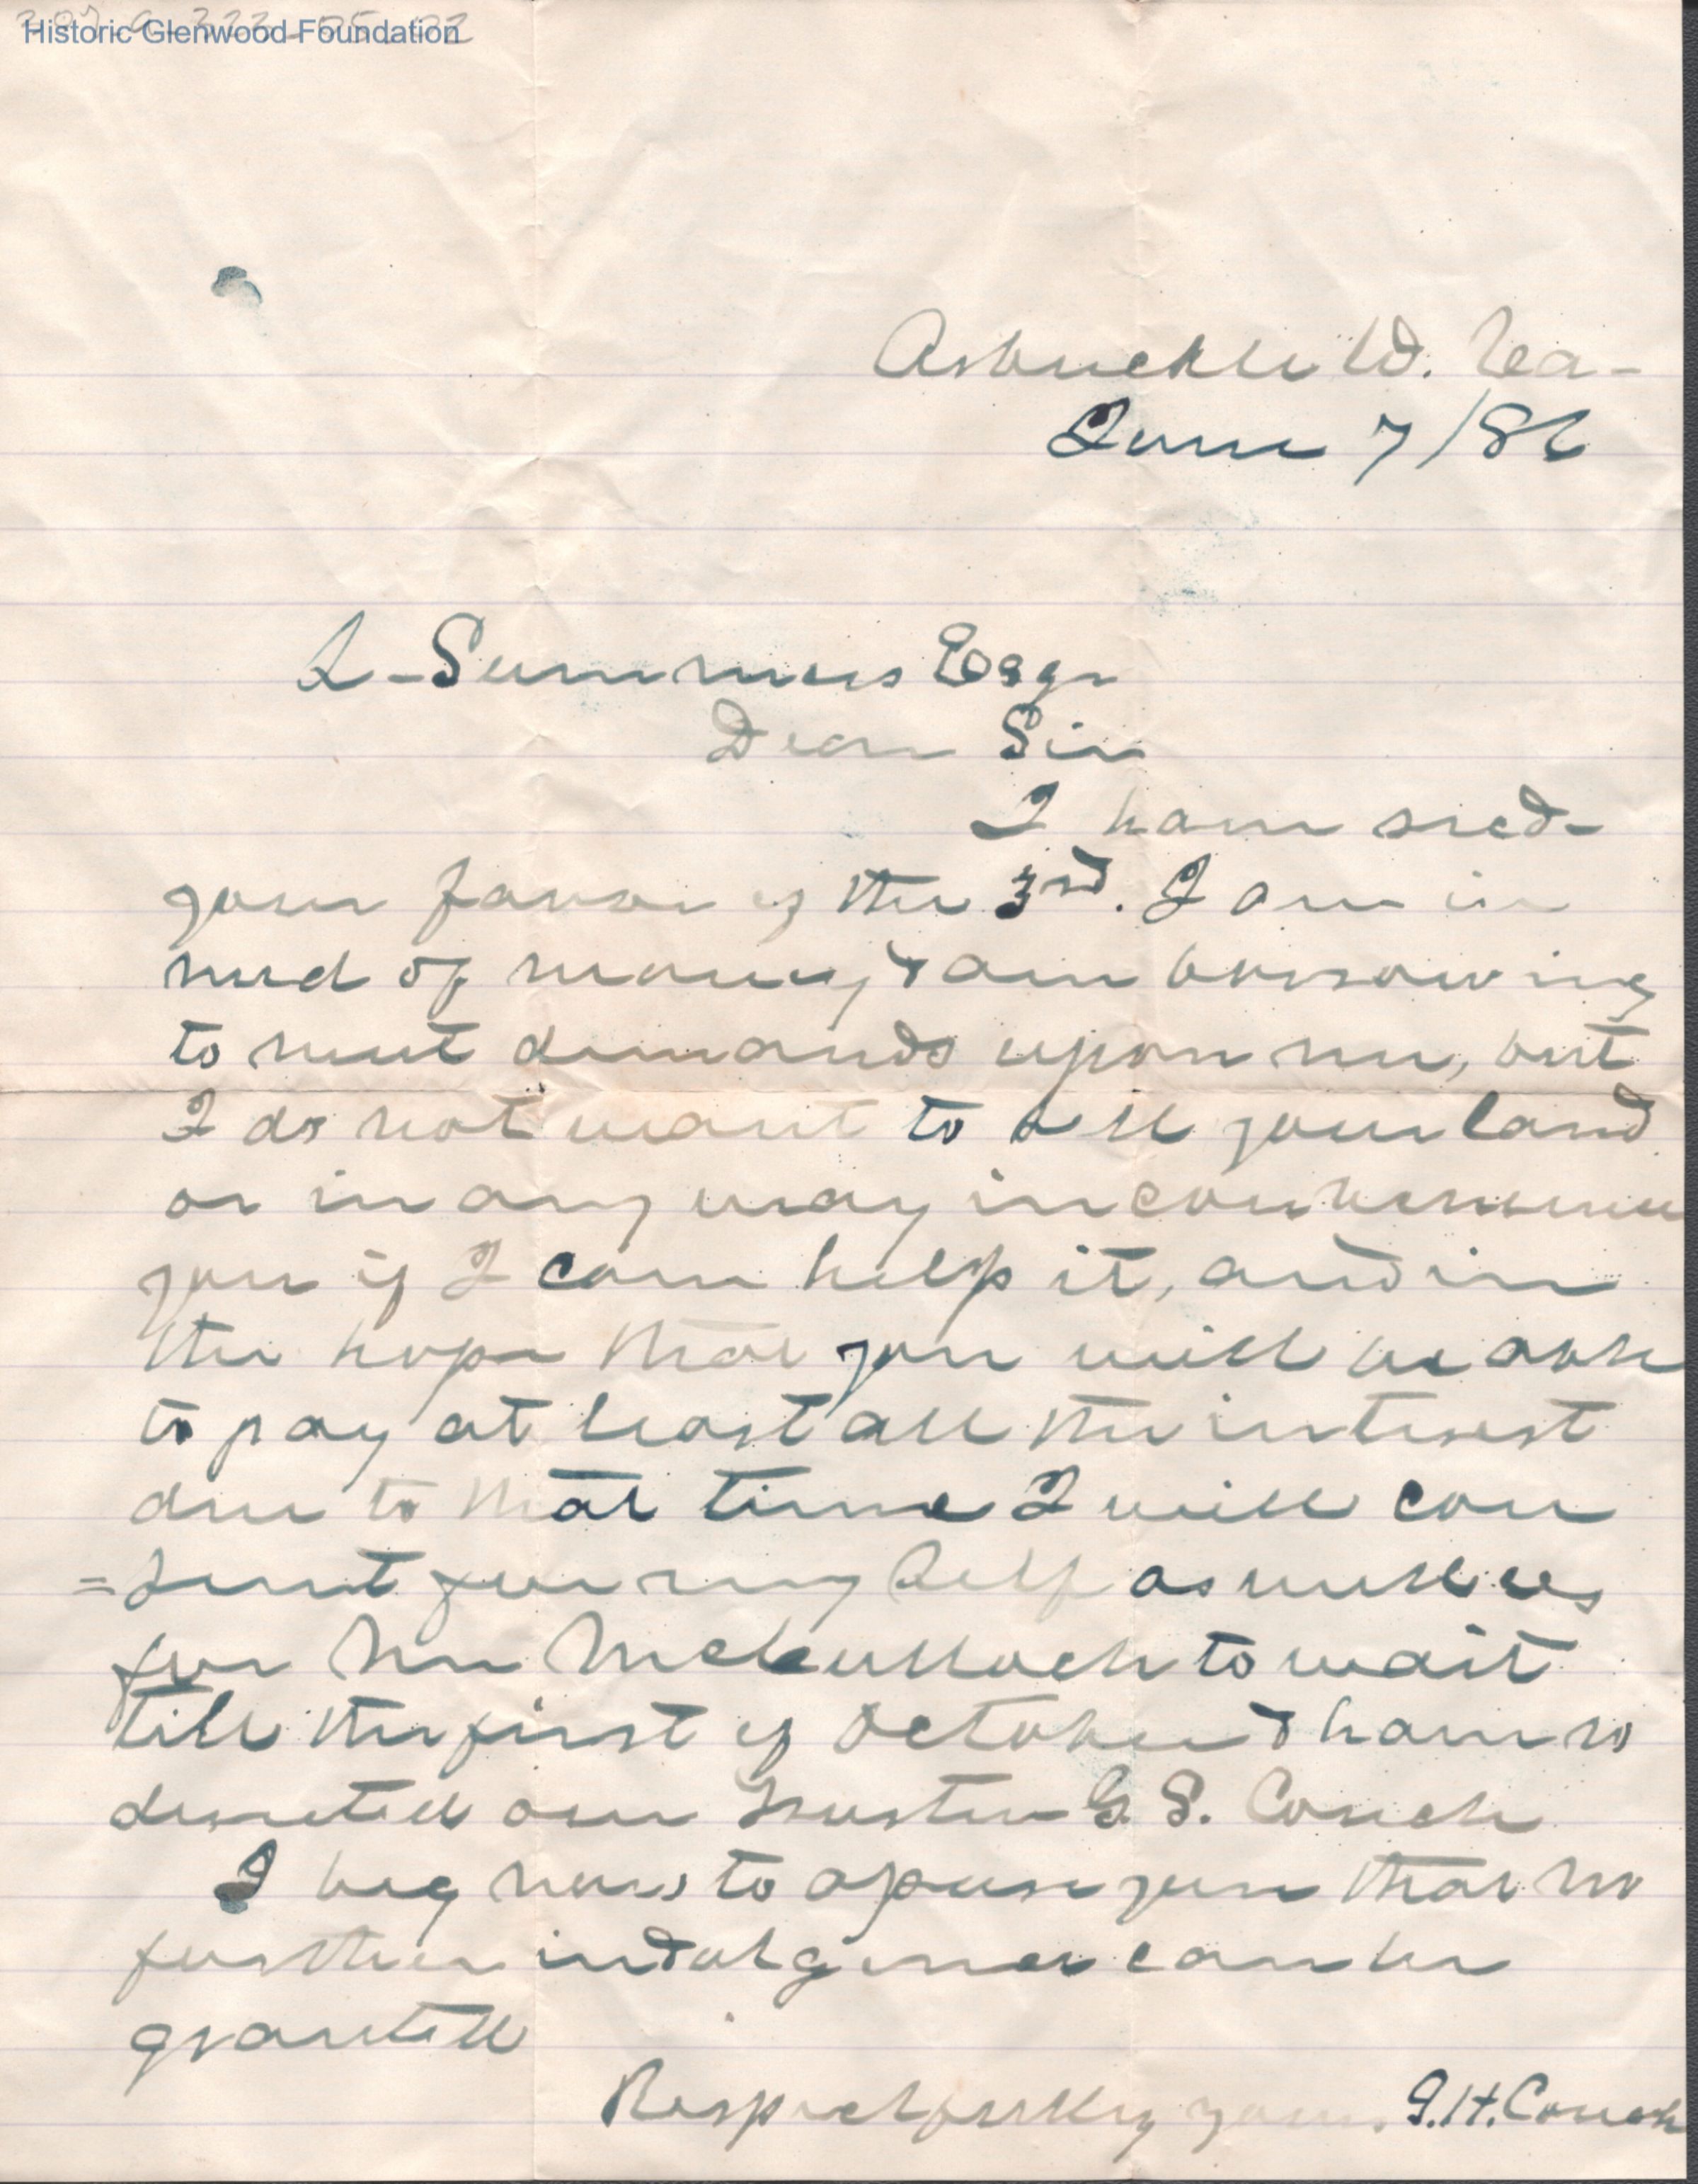 Historic Glenwood Foundation
Arbuckle W. Va-
June 7/86
L- Summers Esqr
Dear Sir
I have recd-
your favor of the 3rd. I am in
need of money & am borrowing
to meet demands upon me, but
I do not want to sell your land
or in any way inconvenience
you if I can help it, and in
the hope that you will be able
to pay at least all the interest
due to that time I will con
=sent for my self as well as
for Mr McCulloch to wait
till the first of October & have so
directed our Trustee G. S. Couch
I beg now to apprise you that no
further indulgence can be
granted
Respectfully yours. J. H. Couch